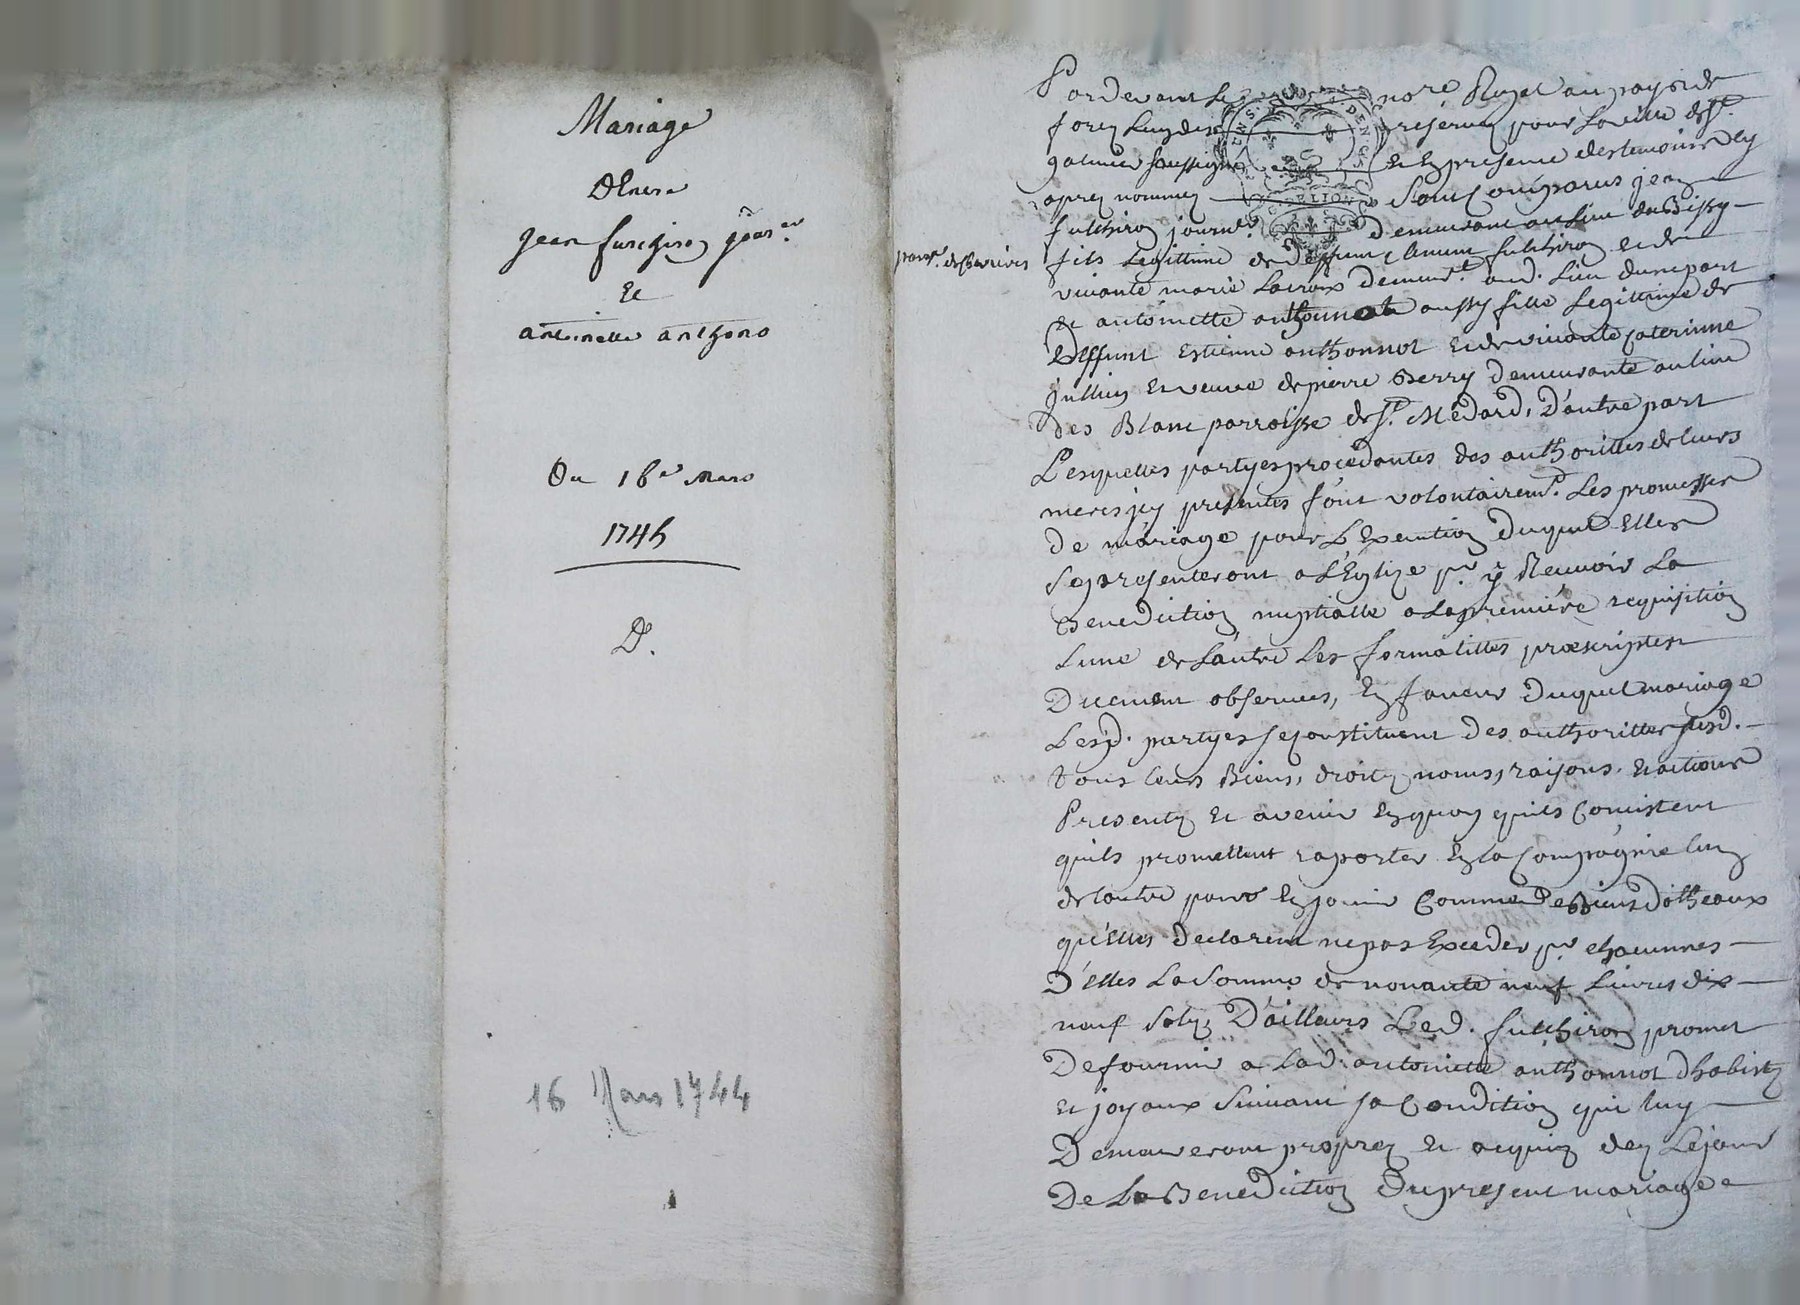 Mariage
D'Entre
jean fulchiron jour.er
Et
antoinette anthono
Du 16e Mars
1745
D.
16 Mars 1744
Par devant Le no.re Royal au pays de
forez Luy des reservez pour La ville de St.
galmier soussigné et En presence des temoins Cy
apres nommez Sont Comparus jean
fulchiron journ.er Demeurant au Lieu de Bissy
parr.e de Chevrières
fils Legittime de deffunt fulchiron et de
vivante marie Lacroix demeur.t aud. Lieu d'une part
et antoinette anthonnot aussy fille Legittime de
Deffunt Estienne anthonnot et de vivante Caterinne
jullien Et veuve de pierre Berry Demeurante au lieu
des Blanc parroisse de St. Médard, D'autre part
Lesquelles partyes procedantes des authorittes de leurs
meres jcy presentes font volontairem.t Les promesses
De mariage pour L'Execution Duquel Elles
se presenteront a L'Eglize pr. y Recevoir La
Benediction nuptialle a La premiere requisition
L'une de L'autre Les formalittes præscriptes
Duement observees, En faveur Duquel mariage
Lesd. partyes se constituent des authorittes susd.
tous leurs Biens, droits, noms, raisons et actions
Presents et avenir En quoy qu'ils Concistent
qu'ils promettent raporter En la Compagnie L'un
de l'autre pour En jouir Comme de Biens Dotheaux
qu'elles declarent ne pas Exceder pr. chacunnes
D'elles La Somme de nonante neuf Livres dix
neuf Sols, D'ailleurs Led. fulchiron promet
De fournir a Lad. antoinette anthonnot d'habits
et joyaux Suivant sa Condition qui luy
Demeureront propres et acquis des Le jour
De La Benediction Du present mariage